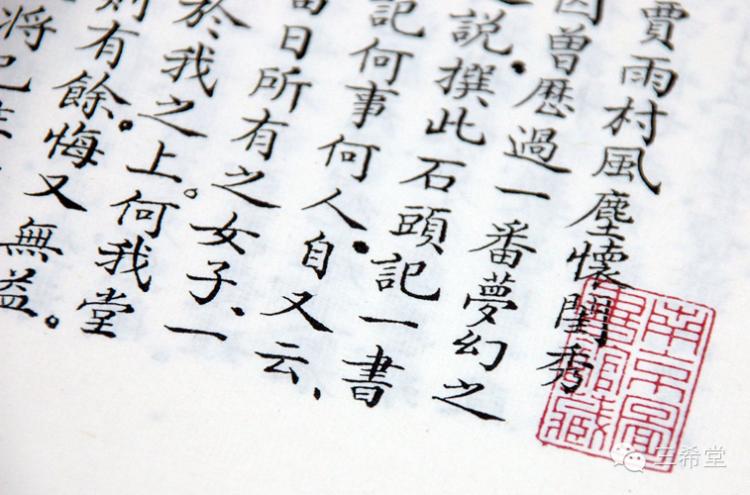 賈雨村風塵懷閨秀
因曾歷過一番夢幻之
說。撰此石頭記一書
記何事何人。自又云、
當日所有之女子、一
於我之上。何我堂
則有餘。悔又無益。
將已
南京圖
書館藏
三希堂